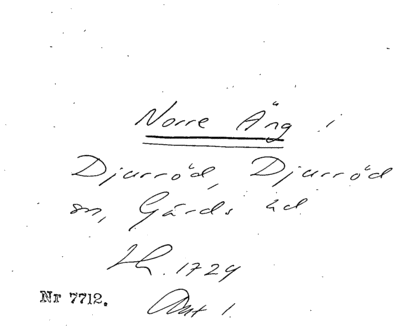 Norre Äng !
Djurröd, Djurröd
sn, Gärds hd
Lh. 1729
Nr 7712. Akt 1.